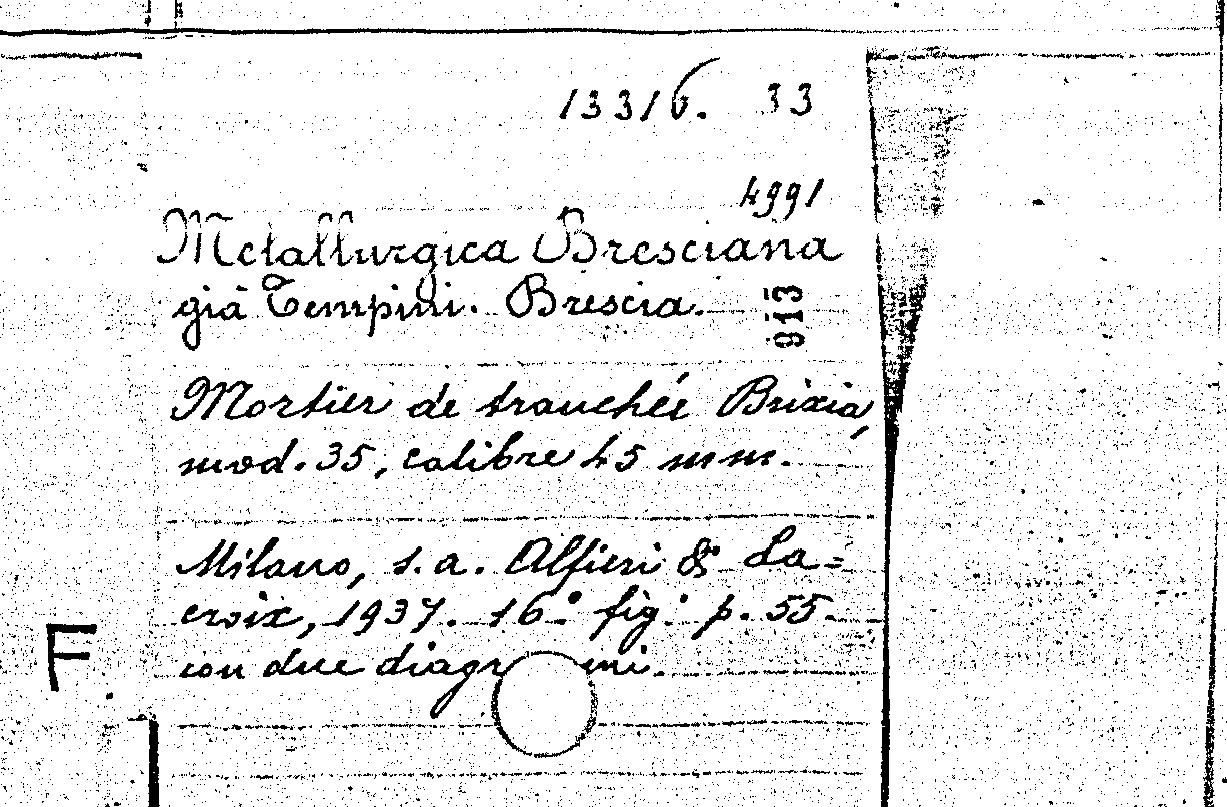 13316. 33
4991
Metallurgica Bresciana
già Tempini. Brescia.
913
Mortier de tranchée Brixia,
mod. 35, calibre 45 mm.
Milano, s.a. Alfieri & La=
croix, 1937. 16° fig. p. 55
con due
F